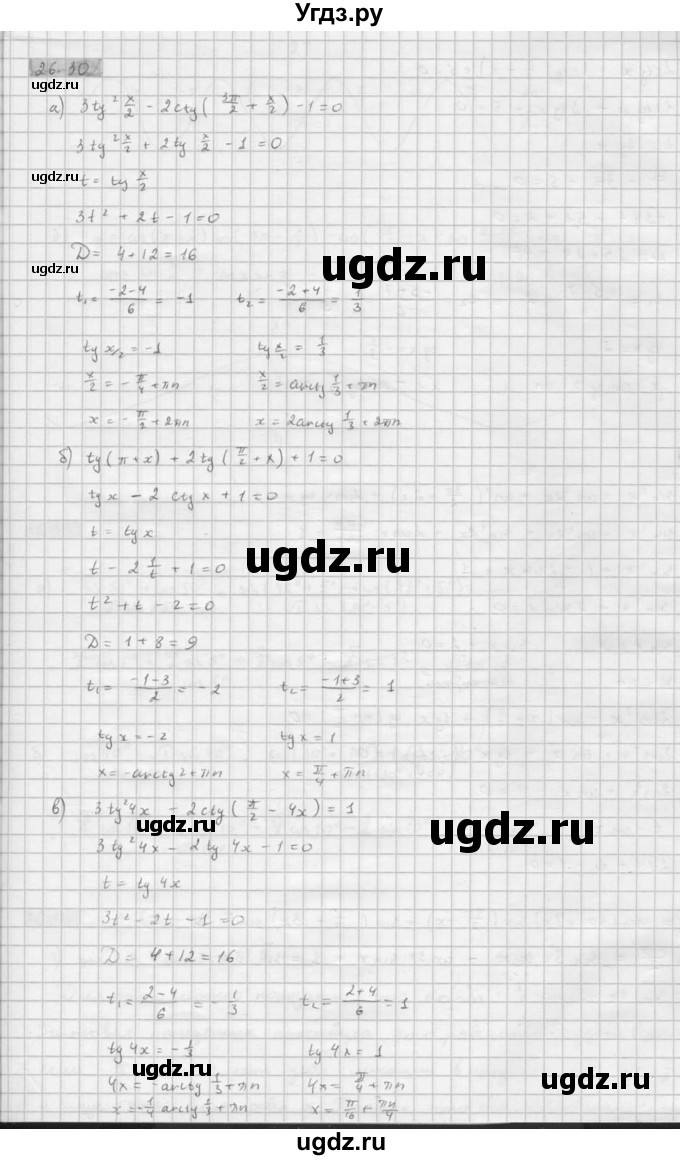 Угдз.ру
26.30
а) 3tg² x/2 - 2ctg(3π/2 + x/2) - 1 = 0
3tg² x/2 + 2tg x/2 - 1 = 0
ugdz.ru
t = tg x/2
3t² + 2t - 1 = 0
D = 4 + 12 = 16
ugdz.ru
ugdz.ru
t₁ = (-2-4)/6 = -1 t₂ = (-2+4)/6 = 1/3
tg x/2 = -1 tg x/2 = 1/3
x/2 = -π/4 + πn x/2 = arctg 1/3 + πn
x = -π/2 + 2πn x = 2arctg 1/3 + 2πn
б) tg(π + x) + 2tg(π/2 + x) + 1 = 0
tg x - 2 ctg x + 1 = 0
t = tg x
ugdz.ru
t - 2 1/t + 1 = 0
t² + t - 2 = 0
D = 1 + 8 = 9
t₁ = (-1-3)/2 = -2 t₂ = (-1+3)/2 = 1
ugdz.ru
tg x = -2 tg x = 1
x = -arctg 2 + πn x = π/4 + πn
в) 3tg² 4x - 2ctg(π/2 - 4x) = 1
ugdz.ru
ugdz.ru
3tg² 4x - 2tg 4x - 1 = 0
t = tg 4x
3t² - 2t - 1 = 0
D = 4 + 12 = 16
t₁ = (2-4)/6 = -1/3 t₂ = (2+4)/6 = 1
tg 4x = -1/3 tg 4x = 1
ugdz.ru
ugdz.ru
4x = -arctg 1/3 + πn 4x = π/4 + πn
x = -1/4 arctg 1/3 + πn x = π/16 + πn/4
ugdz.ru